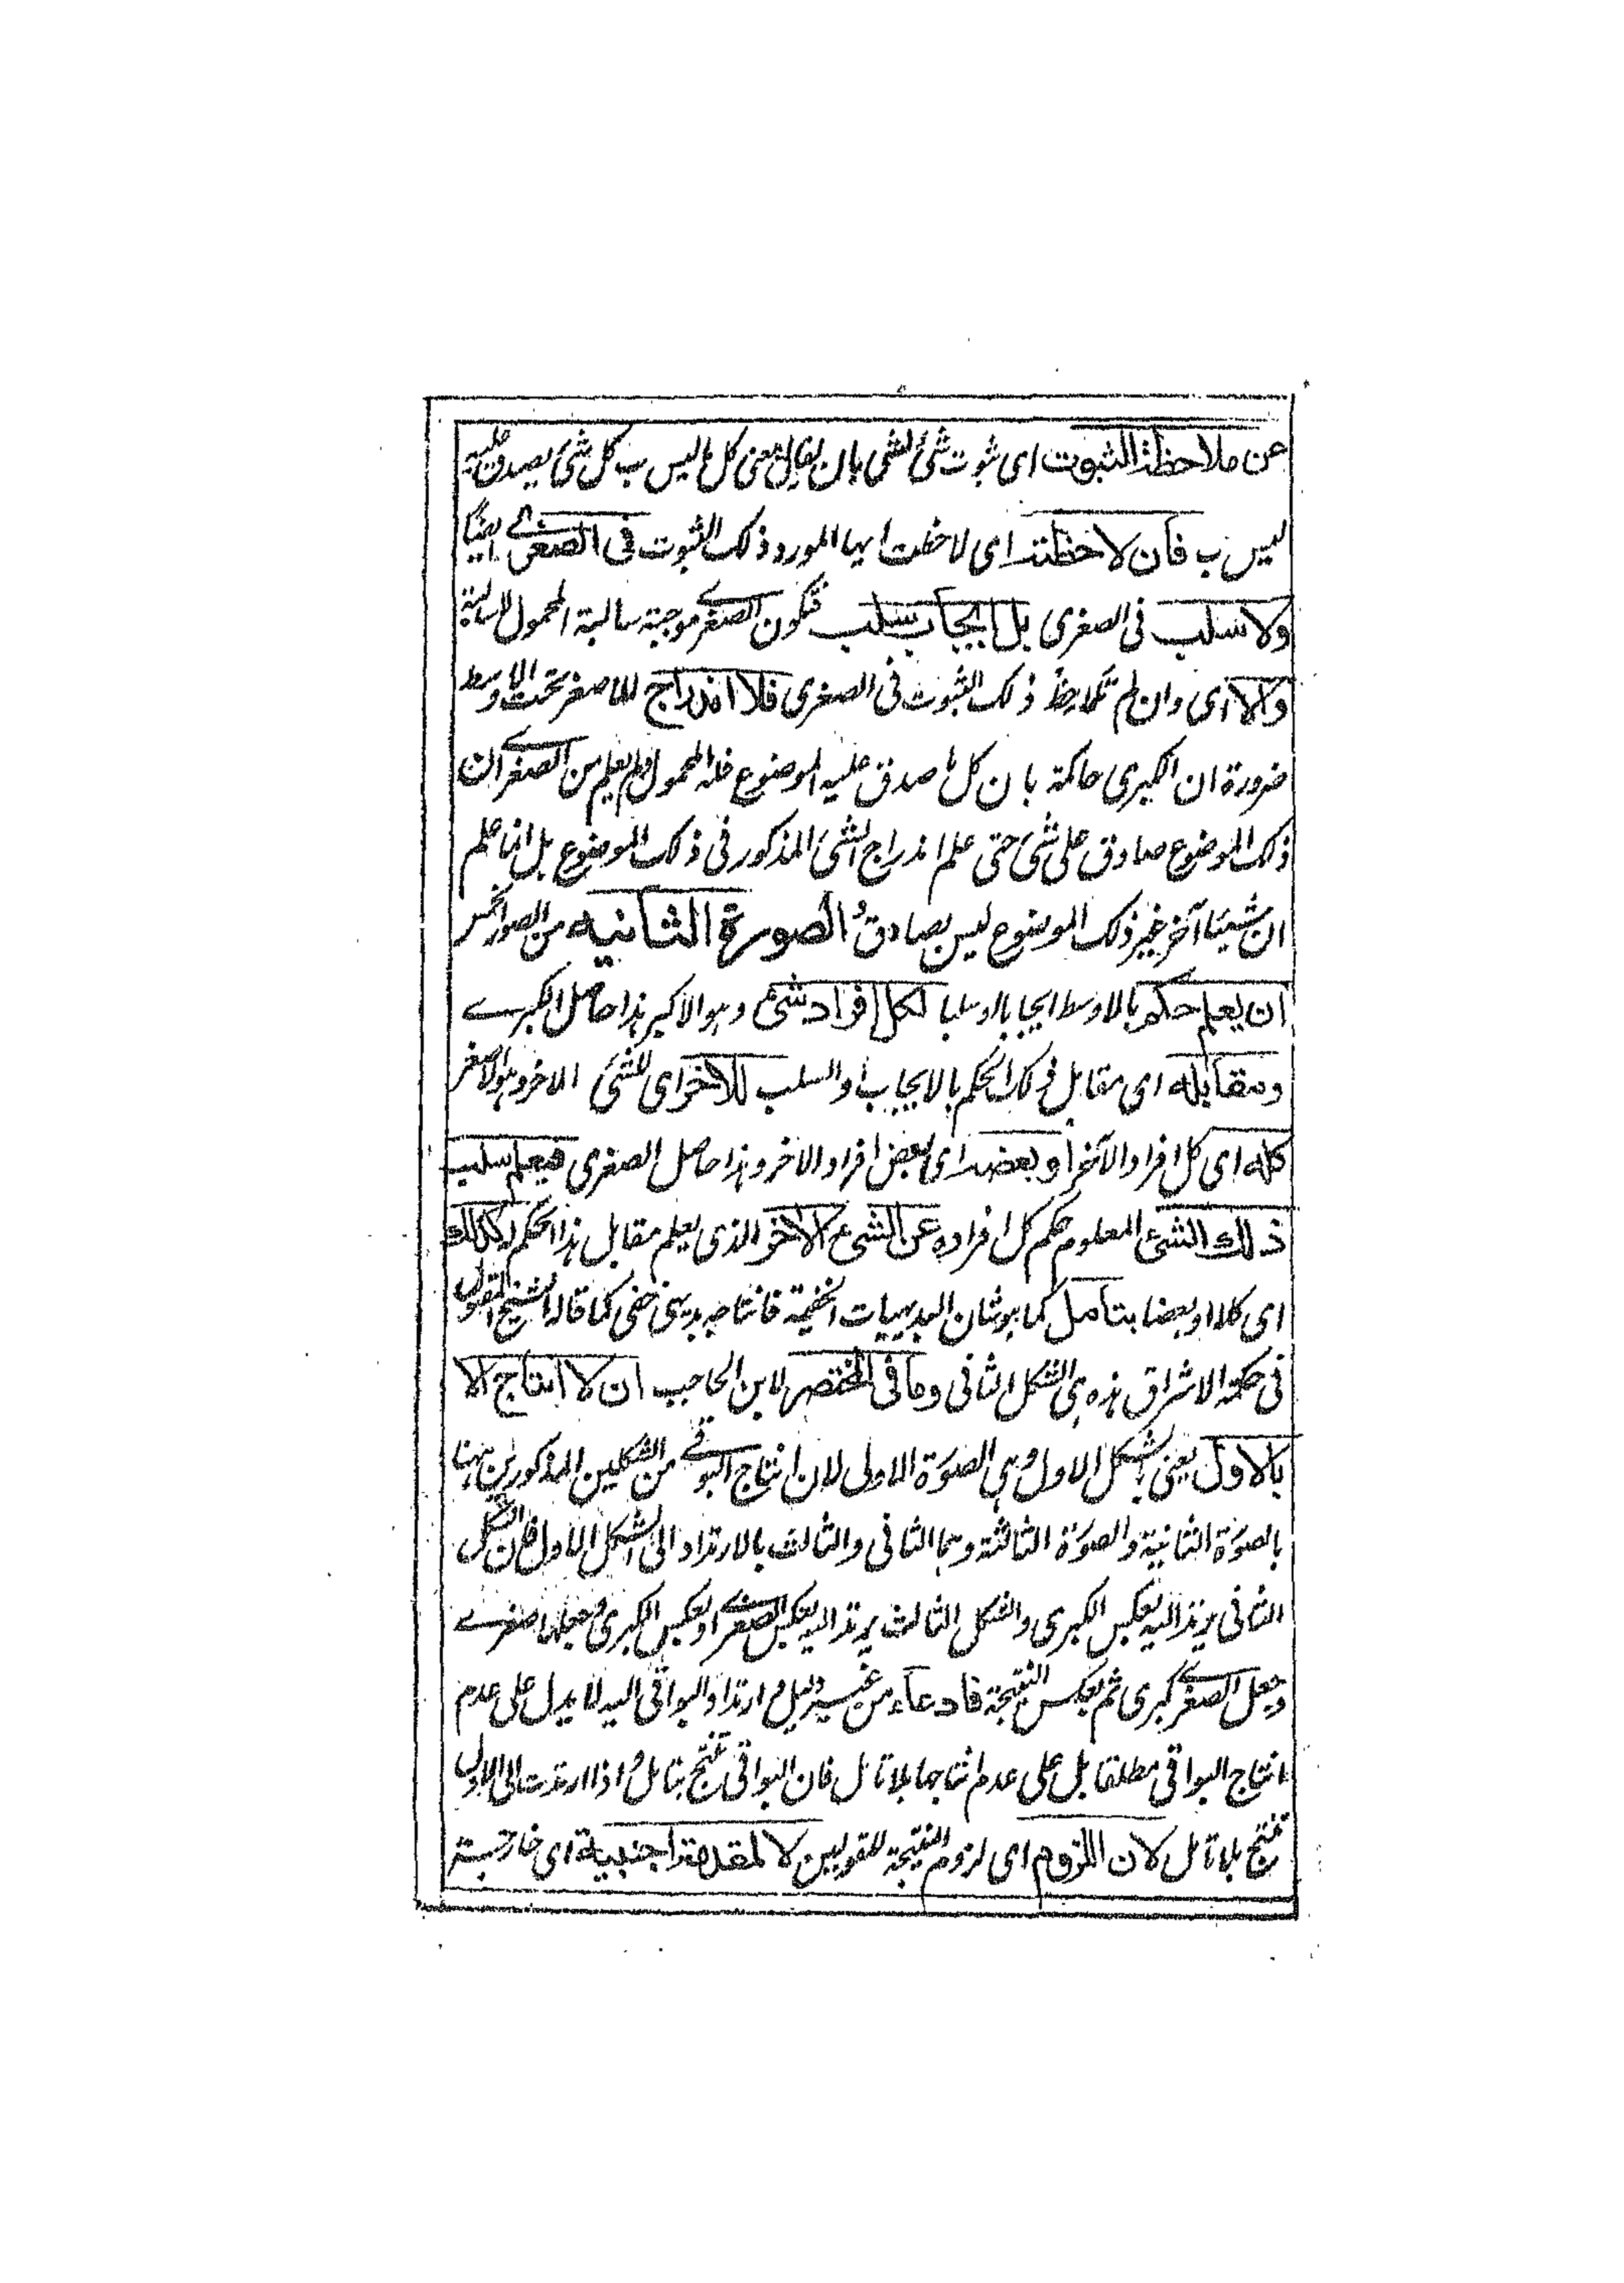 عن ملاحظة الثبوت اى ثبوت شئ لشئ بان يقال معنى كل ما ليس ب كل شئ يصدق عليه
ليس ب فان لاحظته اى لاحظت ايها المورد ذلك الثبوت فى الصغرى ايضا
ولا سلب فى الصغرى بل ايجاب سلب فتكون الصغرى موجبة سالبة المحمول لا سالبة
والا اى وان لم تلاحظ ذلك الثبوت فى الصغرى فلا اندراج للاصغر تحت الاوسط
ضرورة ان الكبرى حاكمة بان كل ما صدق عليه الموضوع فله المحمول ولم يعلم من الصغرى ان
ذلك الموضوع صادق على شئ حتى علم اندراج الشئ المذكور فى ذلك الموضوع بل انما علم
ان شيئا آخر غير ذلك الموضوع ليس بصادق الصورة الثانيه من الصور الخمس
ان يعلم حكم بالاوسط ايجابا او سلبا لكل افراد شئ وهو الاكبر هذا حاصل الكبرى
ومقابله اى مقابل ذلك الحكم بالايجاب او السلب للاخر اى للشئ الاخر وهو الاصغر
كله اى كل افراد الآخر او بعضه اى بعض افراد الاخر وهذا حاصل الصغرى فيعلم سلب
ذلك الشئ المعلوم حكم كل افراده عن الشئ الاخر الذى يعلم مقابل هذا الحكم له كذلك
اى كلا او بعضا بتامل كما هو شان البديهيات الخفية فانتاجه بديهى خفى كما قاله الشيخ المقتول
فى حكمة الاشراق هذه هى الشكل الثانى وما فى المختصر لابن الحاجب ان لا انتاج الا
بالاول يعنى بالشكل الاول وهى الصورة الاولى لان انتاج البواقى من الشكلين المذكورين ههنا
بالصورة الثانية والصورة الثالثة وهما الثانى والثالث بالارتداد الى الشكل الاول فان الشكل
الثانى يرتد اليه بعكس الكبرى والشكل الثالث يرتد اليه بعكس الصغرى او بعكس الكبرى وجعلها صغرى
وجعل الصغرى كبرى ثم بعكس النتيجة فادعاء من غير دليل و ارتداد البواقى اليه لا يدل على عدم
انتاج البواقى مطلقا بل على عدم انتاجها بلا تامل فان البواقى تنتج بتامل و اذا ارتدت الى الاول
تنتج بلا تامل لان اللزوم اى لزوم النتيجة للقولين لا لمقدمة اجنبية اى خارجة